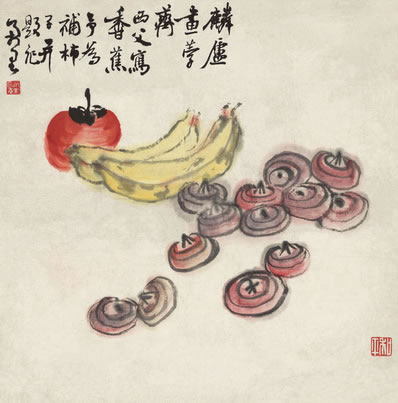 麟廬
畫荸
薺
西父寫
香蕉
予為
補柿
子并
題記